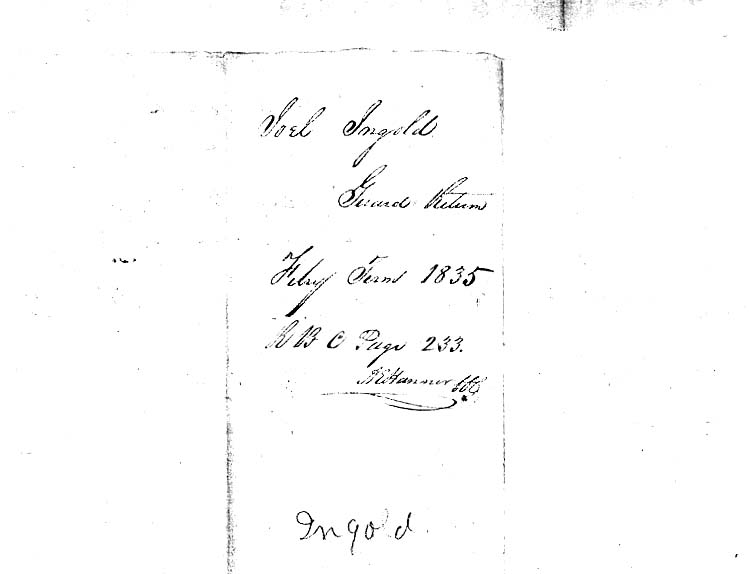 Joel Ingold
Guard Return
Feby Term 1835
R B C Page 233.
Hanner CCC
Ingold